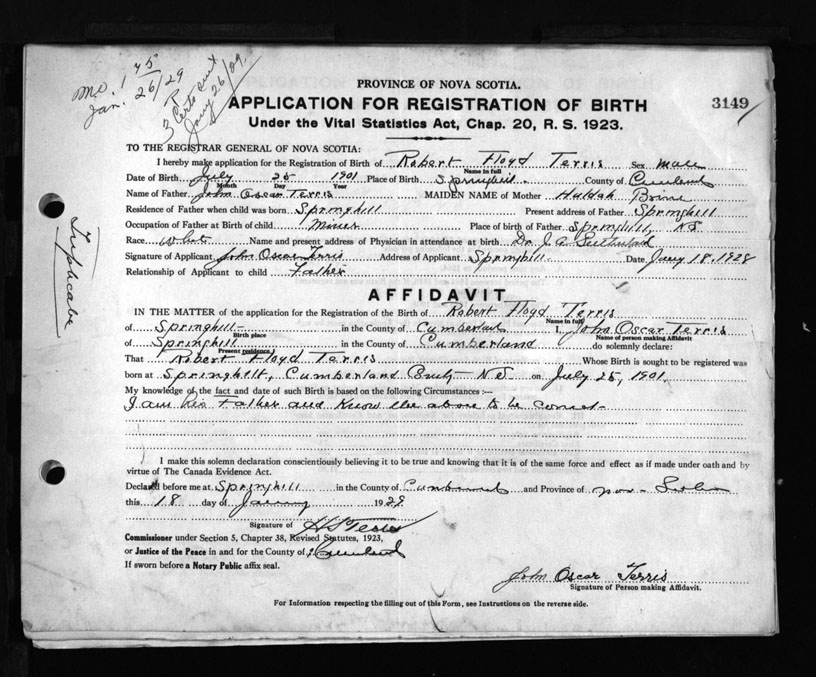 m.c. 1 75
Jan. 26/29
3 Certs sent
Jany 26/29.
PROVINCE OF NOVA SCOTIA.
APPLICATION FOR REGISTRATION OF BIRTH 3149
Under the Vital Statistics Act, Chap. 20, R. S. 1923.
TO THE REGISTRAR GENERAL OF NOVA SCOTIA:
I hereby make application for the Registration of Birth of Robert Floyd Terris Sex male
Name in full
Date of Birth July 25 1901 Place of Birth Springhill County of Cumberland
Month Day Year
Name of Father John Oscar Terris MAIDEN NAME of Mother Huldah
Residence of Father when child was born Springhill Present address of Father Springhill
Occupation of Father at Birth of child Miner Place of birth of Father Springhill, NS
Race white Name and present address of Physician in attendance at birth Dr. J. A.
Signature of Applicant John Oscar Terris Address of Applicant Springhill Date Jany 18, 1928
Relationship of Applicant to child Father
Triplicate
AFFIDAVIT
IN THE MATTER of the application for the Registration of the Birth of Robert Floyd Terris
Name in full
of Springhill in the County of Cumberland I, John Oscar Terris
Birth place Name of person making Affidavit
of Springhill in the County of Cumberland do solemnly declare:
Present residence
That Robert Floyd Terris Whose Birth is sought to be registered was
born at Springhill, Cumberland County NS on July 25, 1901.
My knowledge of the fact and date of such Birth is based on the following Circumstances :—
I am his Father and Know the above to be correct
I make this solemn declaration conscientiously believing it to be true and knowing that it is of the same force and effect as if made under oath and by
virtue of The Canada Evidence Act.
Declared before me at Springhill in the County of Cumberland and Province of Nova Scotia
this 18 day of January 1929
Signature of
Commissioner under Section 5, Chapter 38, Revised Statutes, 1923,
or Justice of the Peace in and for the County of Cumberland
If sworn before a Notary Public affix seal.
John Oscar Terris
Signature of Person making Affidavit.
For Information respecting the filling out of this Form, see Instructions on the reverse side.